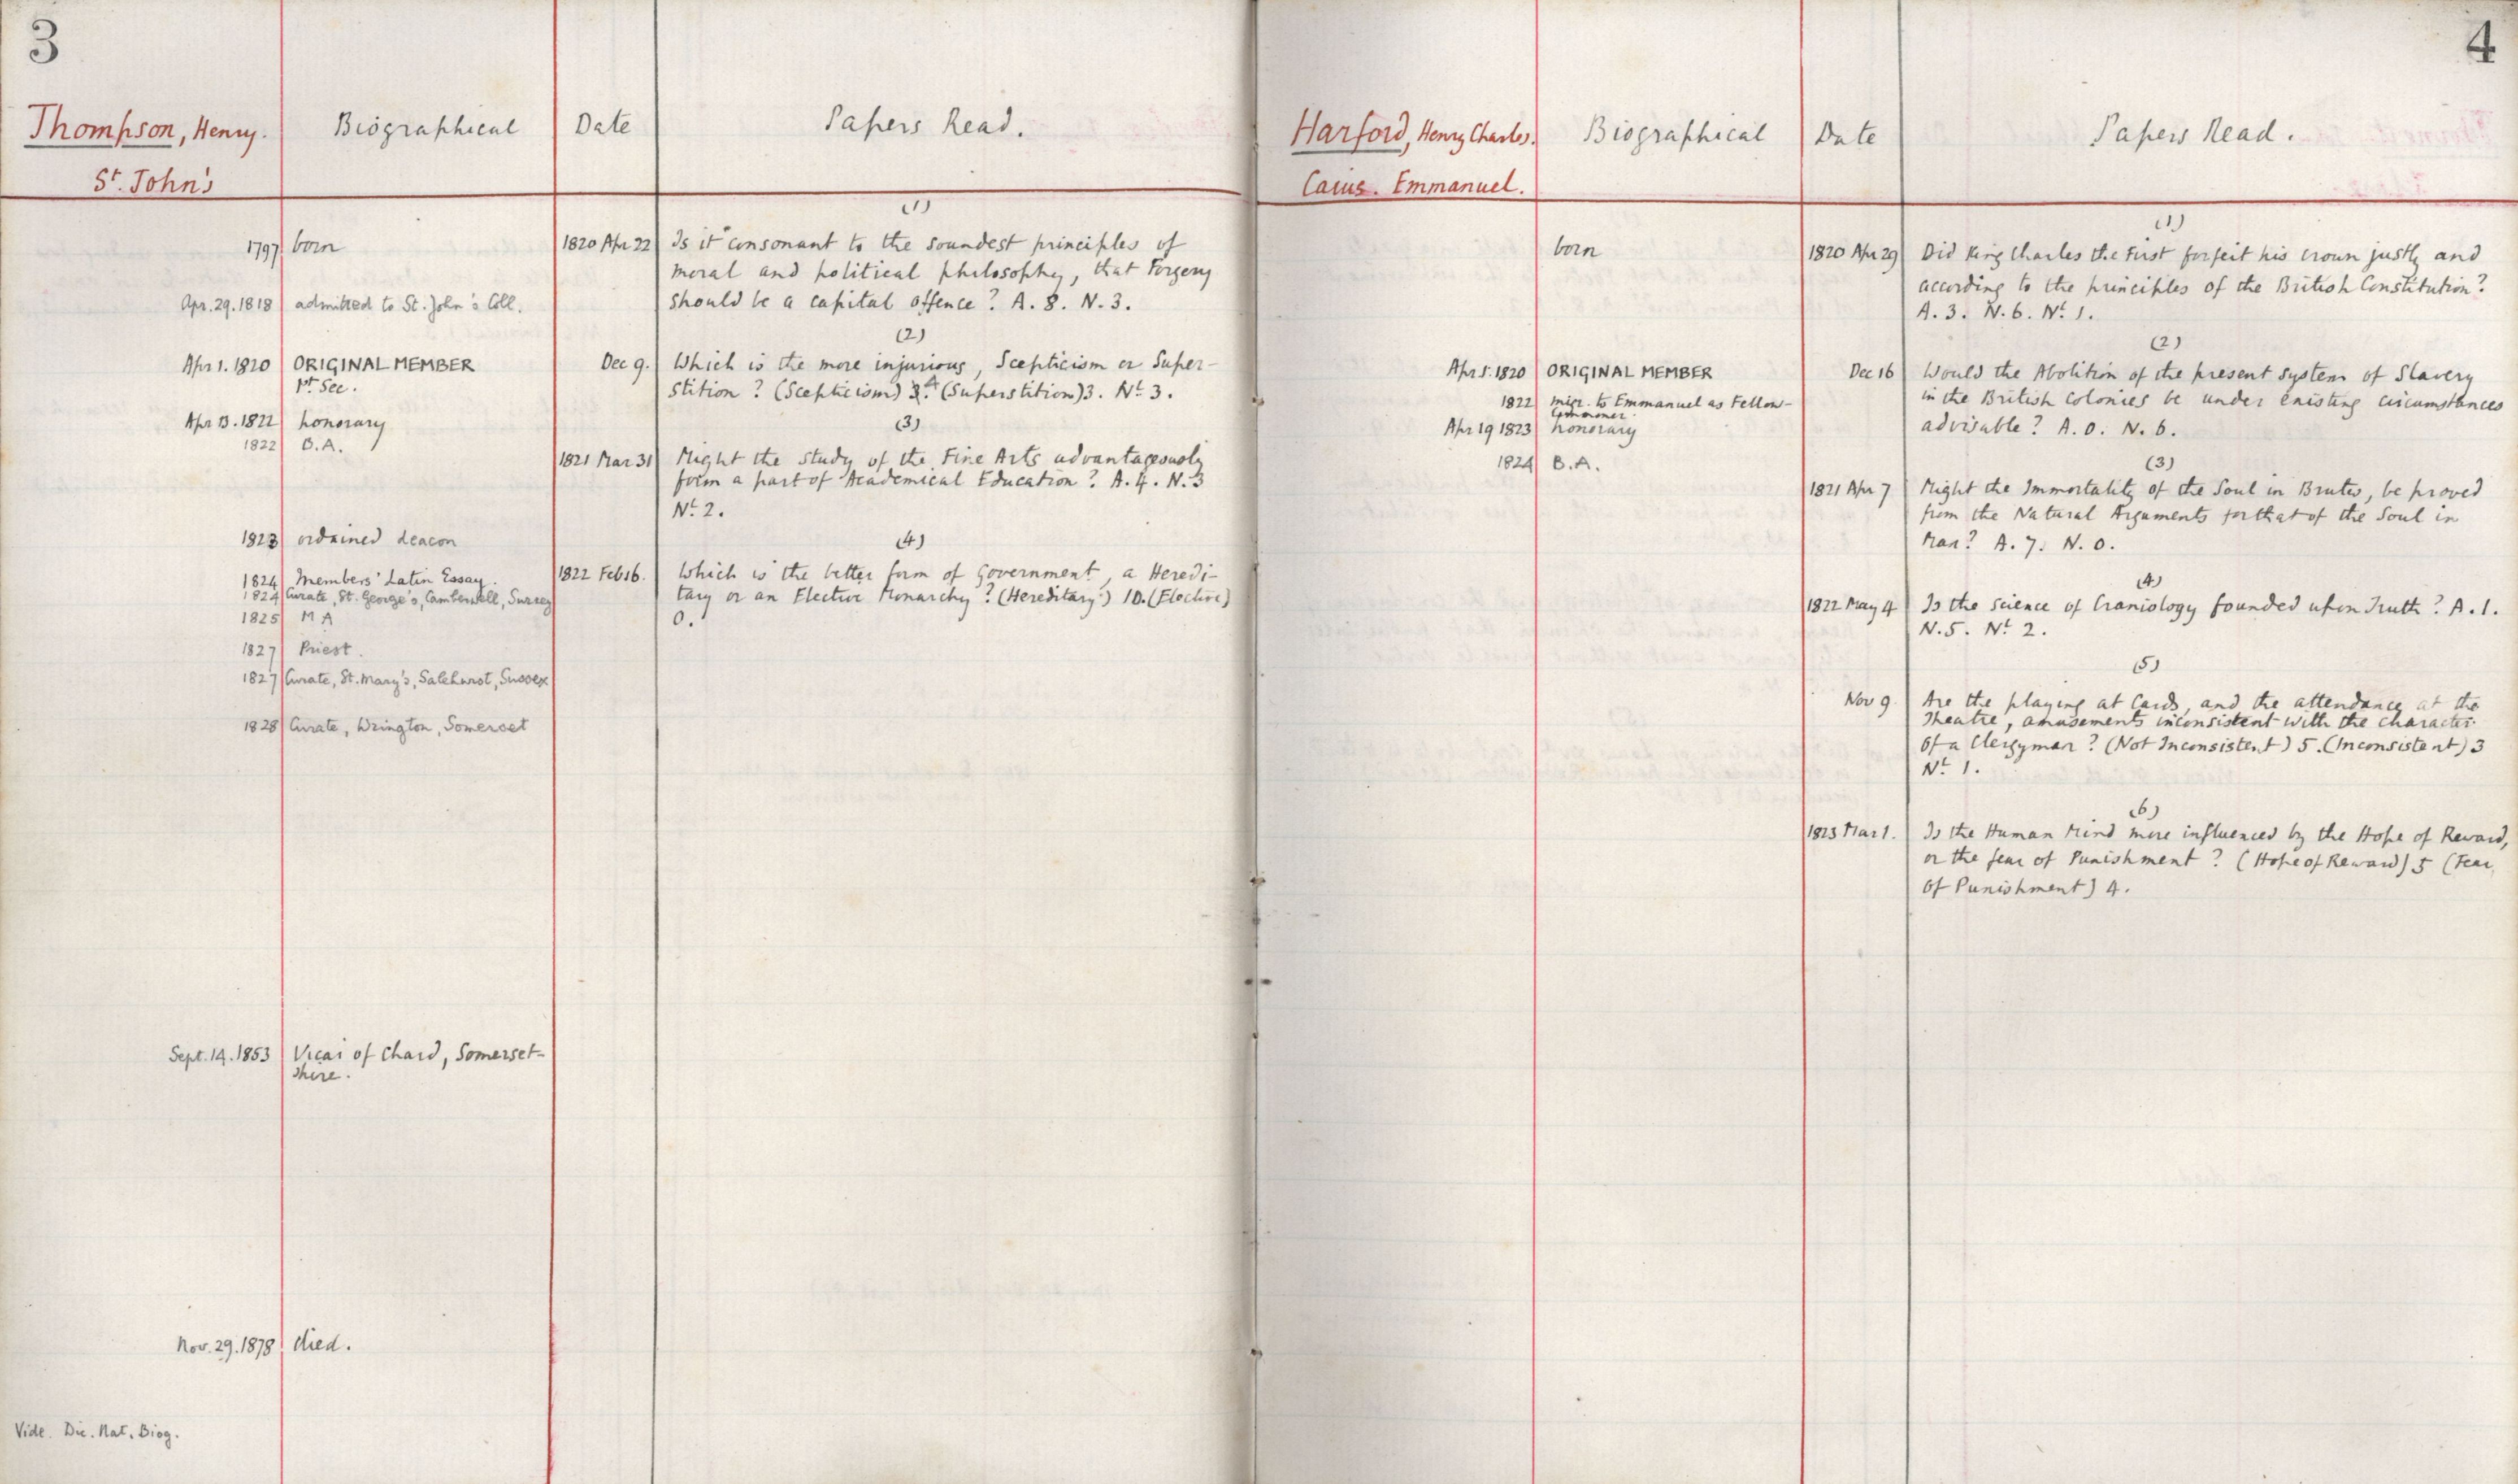 3
Thompson, Henry.
St. John's
Biographical
Date
Papers Read.
1797 born
Apr. 29. 1818 admitted to St. John's Coll.
Apr 1. 1820 ORIGINAL MEMBER
1st Sec.
Apr 13. 1822 honorary
1822 B.A.
1823 ordained deacon
1824 Members' Latin Essay.
1824 Curate, St. George's, Camberwell, Surrey
1825 M A
1827 Priest.
1827 Curate, St. Mary's, Salehurst, Sussex
1828 Curate, Wrington, Somerset
Sept. 14. 1853 Vicar of Chard, Somerset-
shire.
Nov. 29. 1878 died.
Vide. Dic. Nat. Biog.
(1)
1820 Apr 22 Is it consonant to the soundest principles of
moral and political philosophy, that Forgery
should be a capital offence? A. 8. N. 3.
(2)
Dec 9. Which is the more injurious, Scepticism or Super-
stition? (Scepticism) 2. (Superstition) 3. Nt. 3.
(3)
1821 Mar 31 Might the study of the Fine Arts advantageously
form a part of Academical Education? A. 4. N. 3
Nt. 2.
(4)
1822 Feb 16. Which is the better form of Government, a Heredi-
tary or an Elective Monarchy? (Hereditary) 10. (Elective)
0.
4
Harford, Henry Charles.
Caius. Emmanuel.
Biographical
Date
Papers Read.
born
Apr 1. 1820 ORIGINAL MEMBER
1822 migr. to Emmanuel as Fellow-
Commoner.
Apr 19 1823 honorary
1824 B.A.
(1)
1820 Apr 29 Did King Charles the First forfeit his crown justly and
according to the principles of the British Constitution?
A. 3. N. 6. Nt. 1.
(2)
Dec 16 Would the Abolition of the present system of Slavery
in the British Colonies be under existing circumstances
advisable? A. 0. N. 6.
(3)
1821 Apr 7 Might the Immortality of the Soul in Brutes, be proved
from the Natural Arguments for that of the Soul in
Man? A. 7. N. 0.
(4)
1822 May 4 Is the science of Craniology founded upon Truth? A. 1.
N. 5. Nt. 2.
(5)
Nov 9. Are the playing at Cards, and the attendance at the
Theatre, amusements inconsistent with the character
of a Clergyman? (Not Inconsistent) 5. (Inconsistent) 3
Nt. 1.
(6)
1823 Mar 1. Is the Human Mind more influenced by the Hope of Reward,
or the fear of Punishment? (Hope of Reward) 5 (Fear
of Punishment) 4.